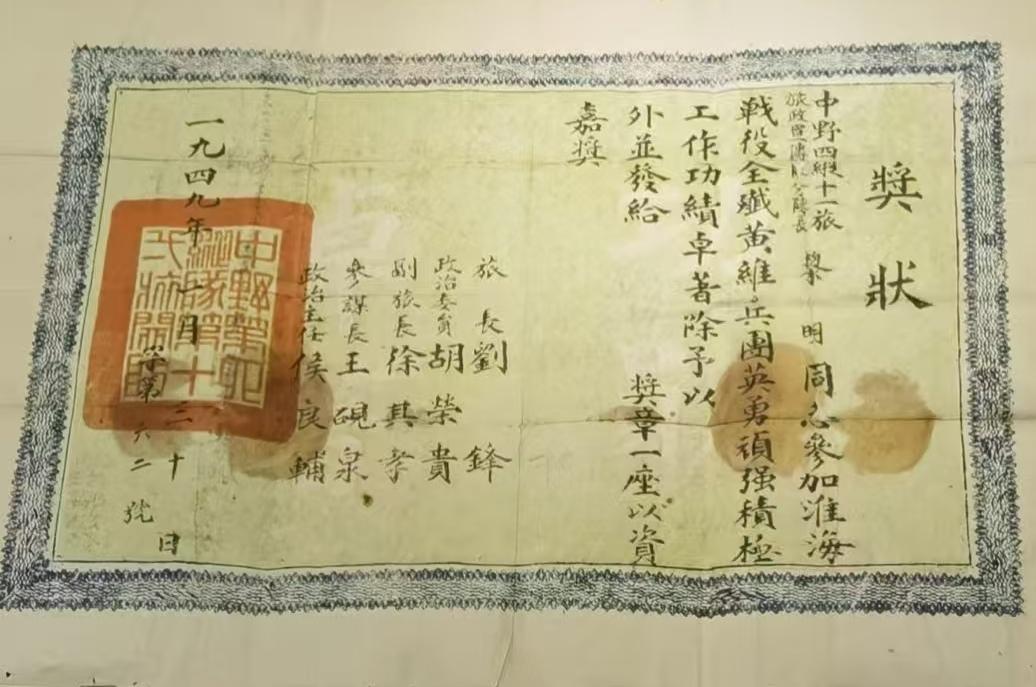 獎狀
中野四縱十一旅
旅政宣傳隊分隊長
黎明同志參加淮海
戰役全殲黃維兵團英勇頑强積極
工作功績卓著除予以
外並發給 獎章一座以資
嘉獎
旅長劉鋒
政治委員胡榮貴
副旅長徐其孝
參謀長王硯泉
政治主任侯良輔
一九四九年一月三十日
字第六二號